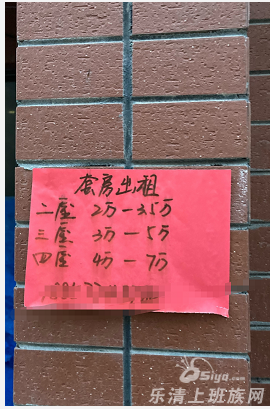 套房出租
二座 2万—3.5万
三座 3万—5万
四座 4万—7万
Osiyo.com
乐清上班族网